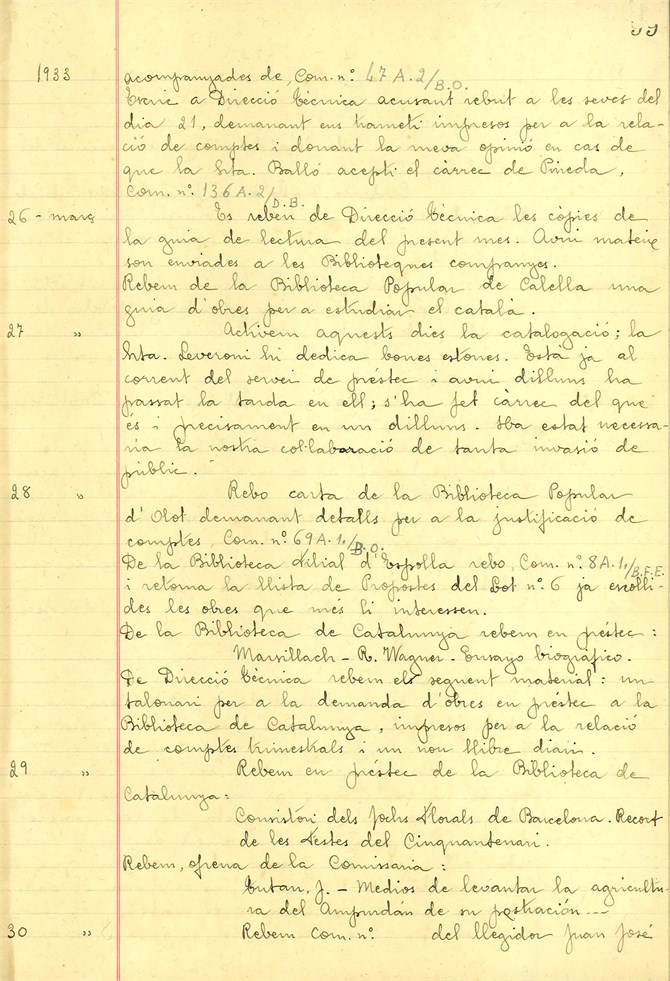 1933 acompanyades de, Com. n.º 47 A.2/B.O.
Escric a Direcció Tècnica acusant rebut a les seves del
dia 21, demanant ens trameti impresos per a la rela-
ció de comptes i donant la meva opinió en cas de
que la Srta. Balló accepti el càrrec de Pineda,
Com. n.º 136 A.2/D.B.
26 - març Es reben de Direcció Tècnica les còpies de
la guia de lectura del present mes. Avui mateix
son enviades a les Biblioteques companyes.
Rebem de la Biblioteca Popular de Calella una
guia d'obres per a estudiar el català.
27 " Activem aquests dies la catalogació; la
Srta. Leveroni hi dedica bones estones. Està ja al
corrent del servei de préstec i avui dilluns ha
passat la tarda en ell; s'ha fet càrrec del que
és i precisament en un dilluns. Ha estat necessa-
ria la nostra col·laboració de tanta invasió de
públic.
28 " Rebo carta de la Biblioteca Popular
d'Olot demanant detalls per a la justificació de
comptes, Com. n.º 69 A.1/B.O.
De la Biblioteca filial d'Espolla rebo, Com. n.º 8 A.1/B.F.E.
i retorna la llista de Propostes del Lot n.º 6 ja escolli-
des les obres que més li interessen.
De la Biblioteca de Catalunya rebem en préstec:
Marsillach - R. Wagner. Ensayo biográfico.
De Direcció Tècnica rebem els seguent material: un
talonari per a la demanda d'obres en préstec a la
Biblioteca de Catalunya, impresos per a la relació
de comptes trimestrals i un nou llibre diari.
29 " Rebem en préstec de la Biblioteca de
Catalunya:
Consistori dels Jochs Florals de Barcelona. Recort
de les Festes del Cinquantenari.
Rebem, ofrena de la Comissaria:
J. - Medios de levantar la agricultu-
ra del Ampurdán de su postración ...
30 " Rebem Com. n.º del llegidor Juan José